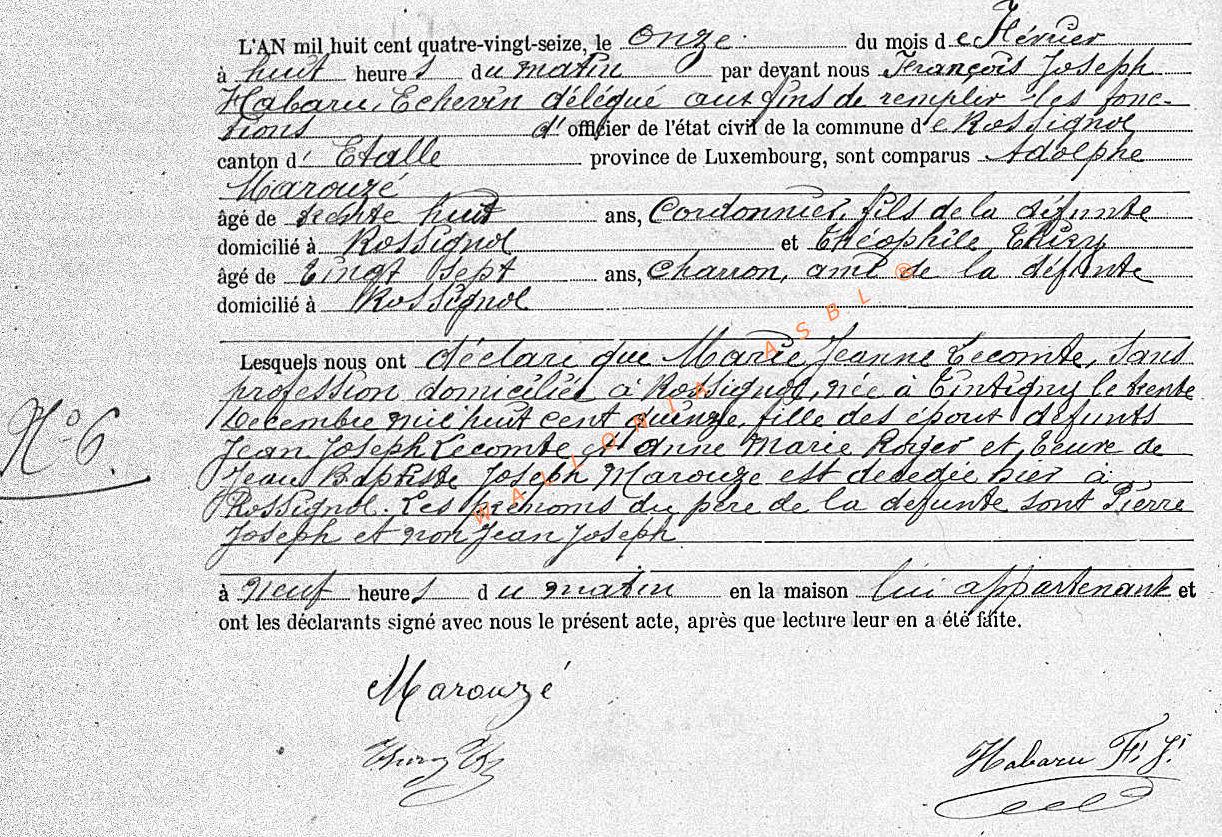 L'AN mil huit cent quatre-vingt-seize, le onze du mois de Février
à huit heures du matin par devant nous François Joseph
Habaru, Echevin délégué aux fins de remplir les fonc-
tions d'officier de l'état civil de la commune de Rossignol
canton d'Etalle province de Luxembourg, sont comparus Adolphe
Marouzé
âgé de trente huit ans, Cordonnier, fils de la défunte
domicilié à Rossignol et Théophile Thiry
âgé de vingt sept ans, Charron, ami de la défunte
domicilié à Rossignol
Lesquels nous ont déclaré que Marie Jeanne Lecomte, sans
profession domiciliée à Rossignol, née à Tintigny le trente
Decembre mil huit cent quinze, fille des époux défunts
Jean Joseph Lecomte et Anne Marie Roger et veuve de
Jean Baptiste Joseph Marouzé est décédée hier à
Rossignol. Les prénoms du père de la défunte sont Pierre
Joseph et non Jean Joseph
N° 6.
à neuf heures du matin en la maison lui appartenant et
ont les déclarants signé avec nous le présent acte, après que lecture leur en a été faite.
Marouzé
Thiry Th
Habaru F. J.
WALLONIA ASBL ®